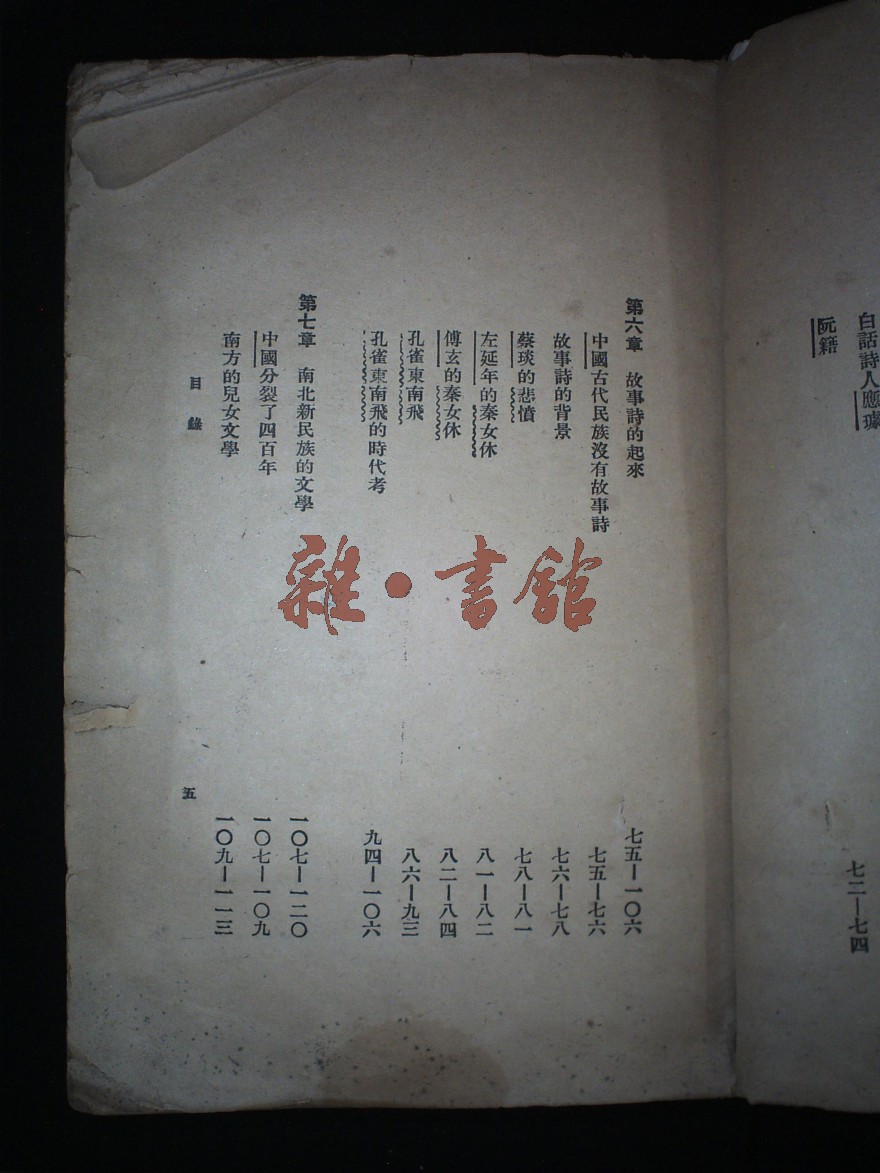 白話詩人應璩
阮籍 七二—七四
第六章 故事詩的起來 七五—一〇六
中國古代民族沒有故事詩 七五—七六
故事詩的背景 七六—七八
蔡琰的悲憤 七八—八一
左延年的秦女休 八一—八二
傅玄的秦女休 八二—八四
孔雀東南飛 八六—九三
孔雀東南飛的時代考 九四—一〇六
第七章 南北新民族的文學 一〇七—一二〇
中國分裂了四百年 一〇七—一〇九
南方的兒女文學 一〇九—一一三
目錄 五
雜·書館